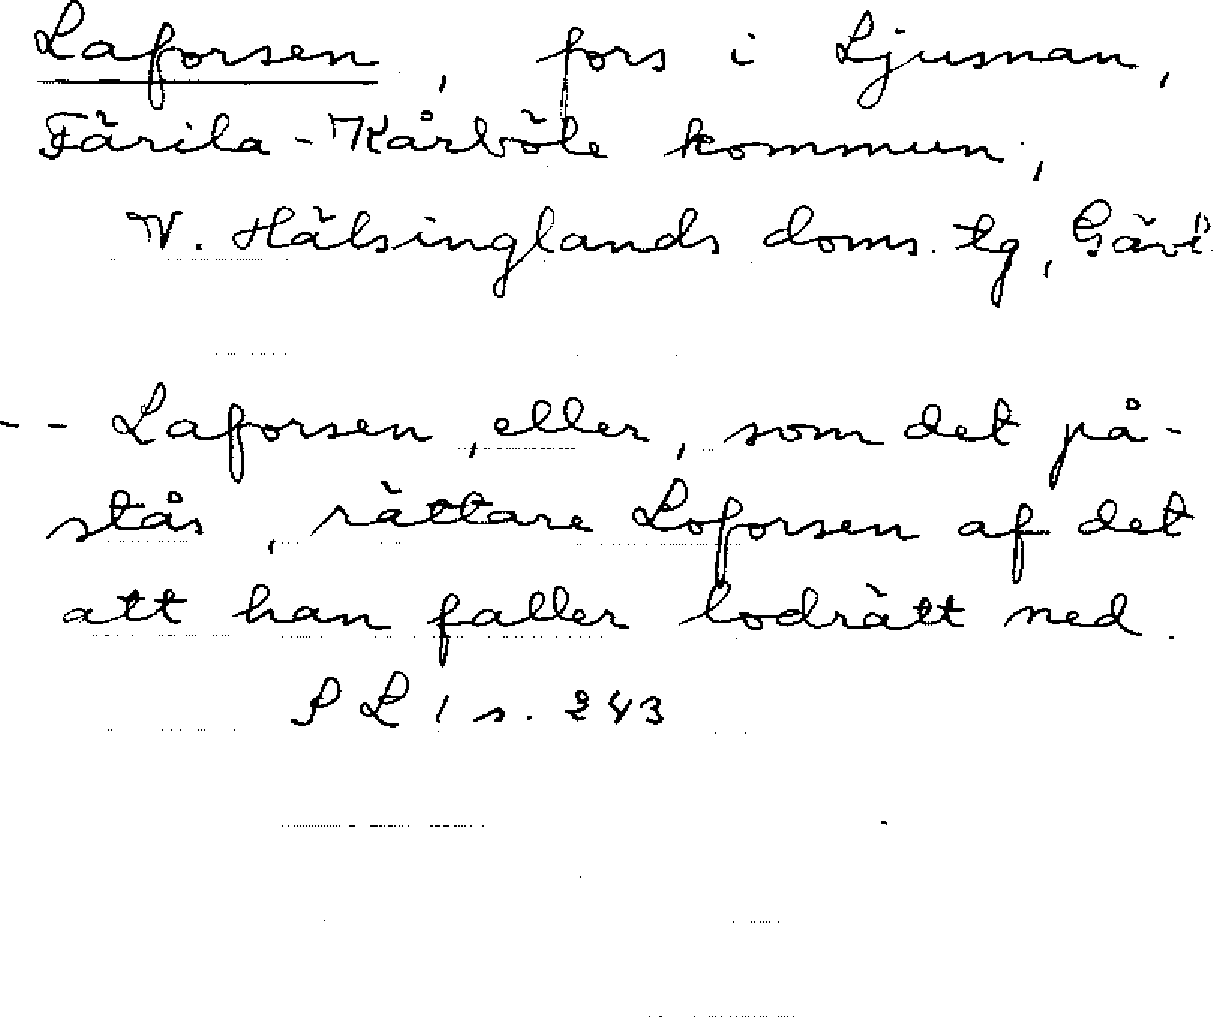 Laforsen, fors i Ljusnan,
Färila-Kårböle kommun,
V. Hälsinglands doms. tg, Gävl.
-- Laforsen, eller, som det på-
stås, rättare Loforsen af det
att han faller lodrätt ned.
P L 1 s. 243